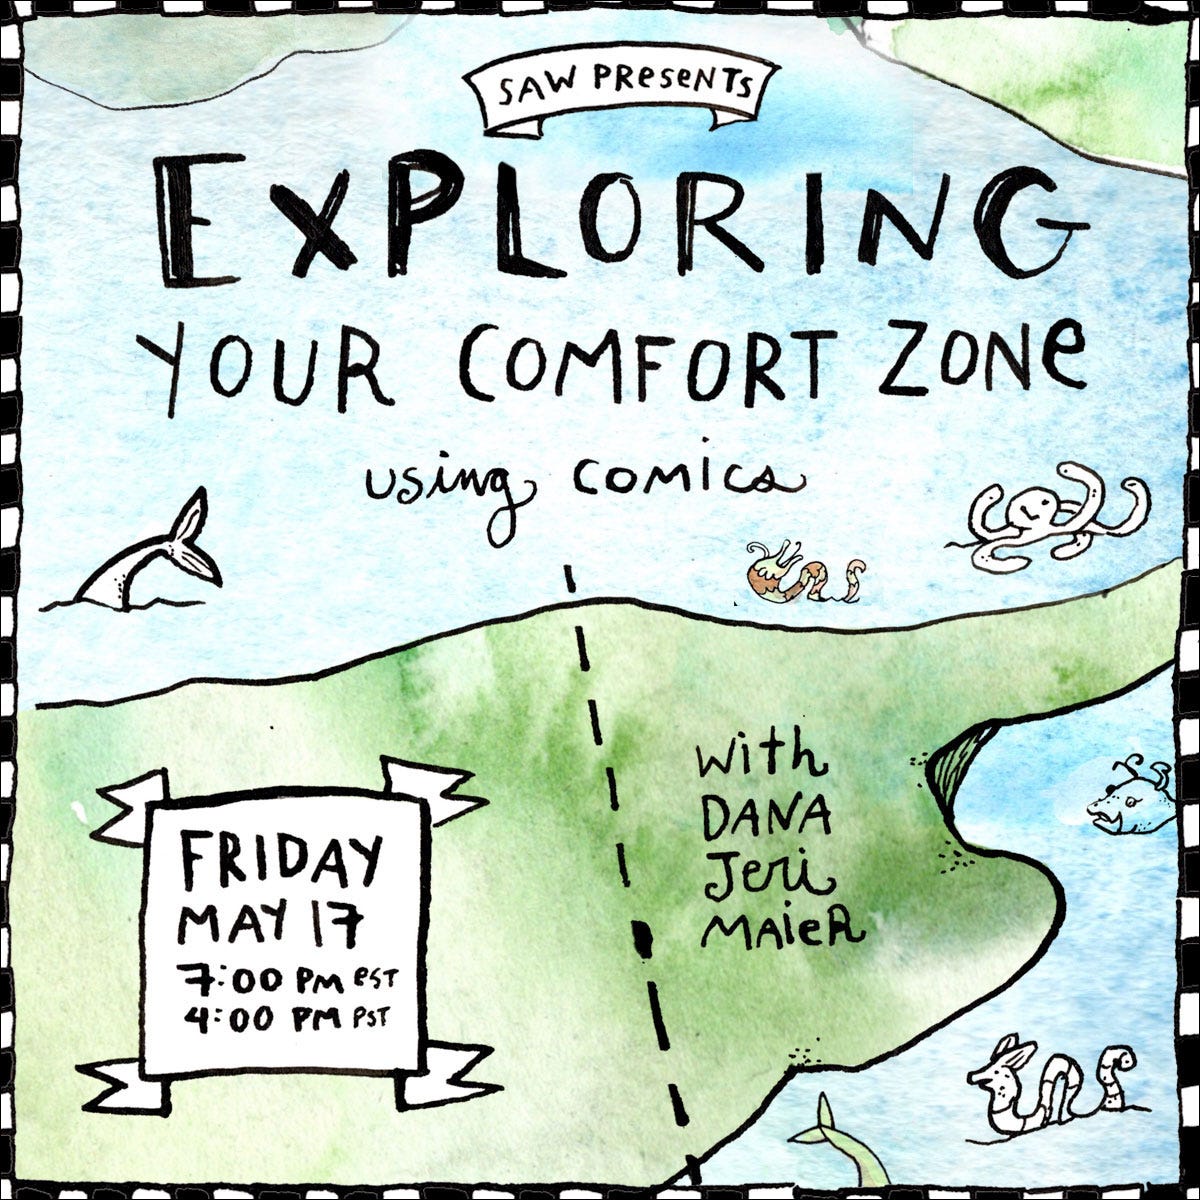 SAW PRESeNTS
EXPLORING
YOUR COMFORT ZONe
using comics
with
DANA
Jeri
MAieR
FRIDAY
MAY 17
7:00 PM eST
4:00 PM PST